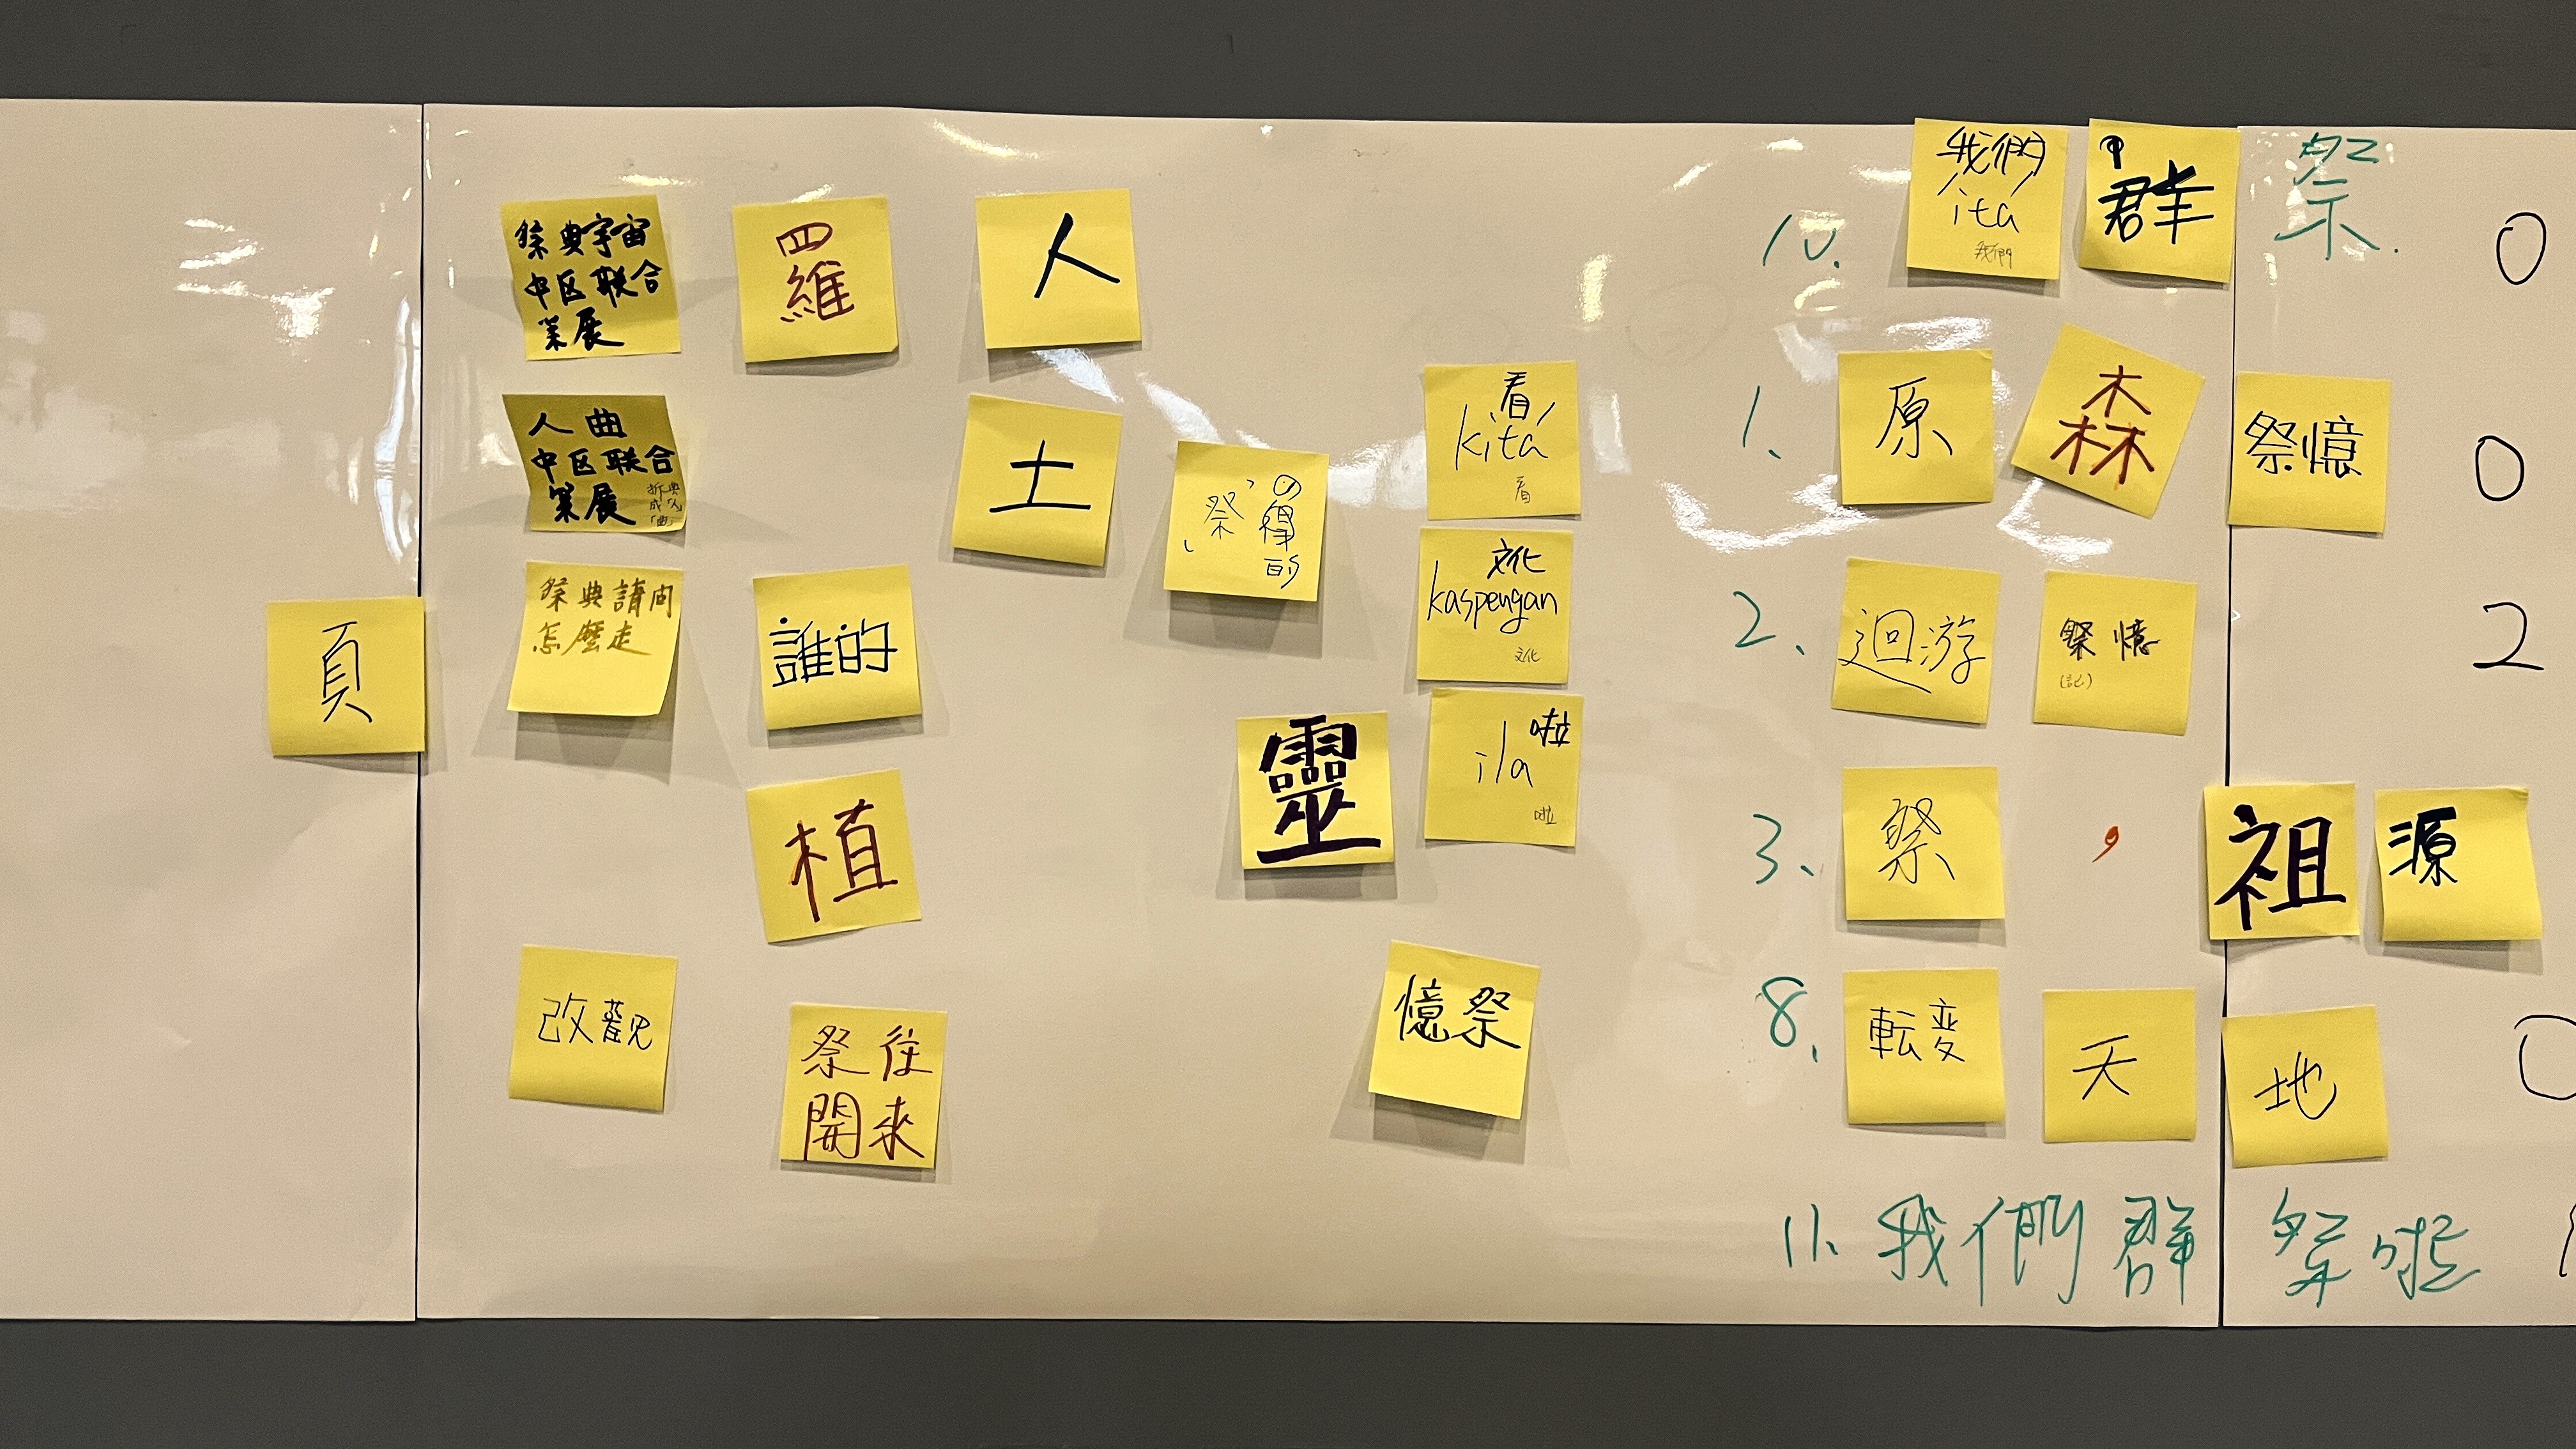 祭典宇宙
中区联合
策展
羅
人
人曲
中区联合
策展
拆典
成「人」
「曲」
土
祭典請問
怎麼走
誰的
頁
植
改觀
祭往
開來
の得的
「祭」
看
kita
看
文化
kaspengan
文化
靈
啦
ila
啦
憶祭
10.
我們
ita
我們
群
祭.
0
1、
原
森
祭憶
0
2、
迴游
祭憶
(記)
2
3、
祭
,
祖
源
8、
転変
天
地
0
11、我們群 祭啦